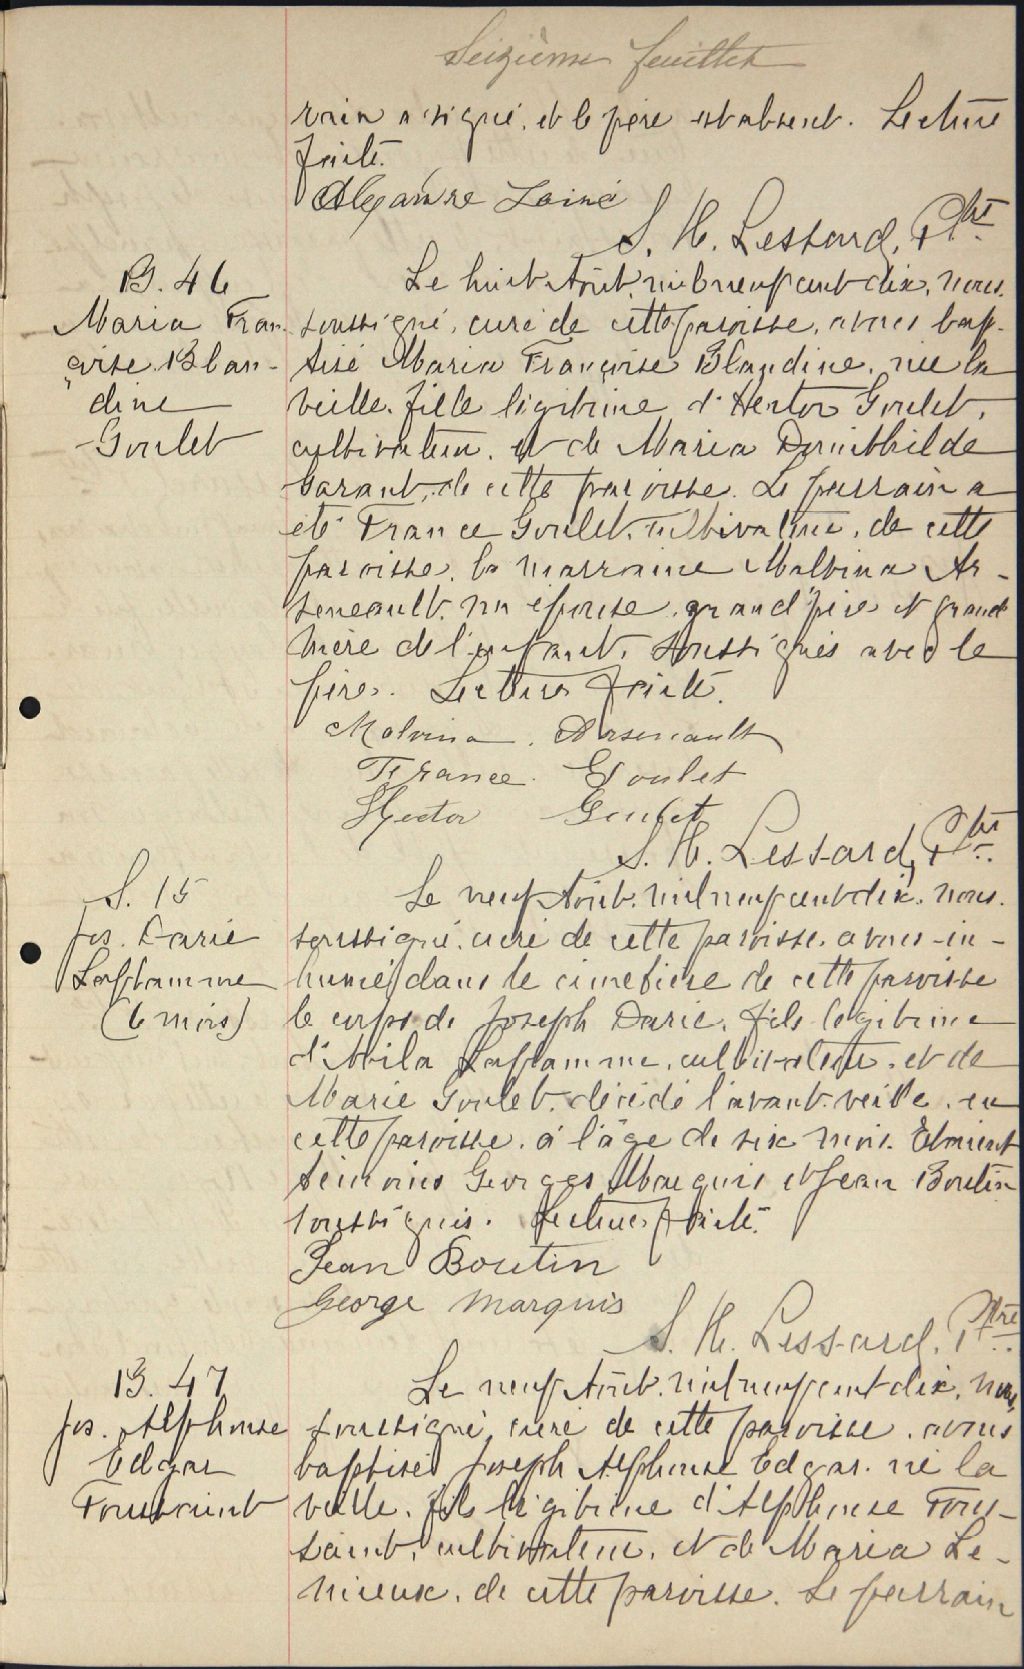 Seizième feuillet
rain a signé, et le père est absent. Lecture
faite.
Alexandre Lainé
S. H. Lessard, Ptre
B. 46
Maria Fran-
çoise Blan-
dine
Goulet
Le huit Août, mil neuf cent dix, nous,
soussigné, curé de cette paroisse, avons bap-
tisé Maria Françoise Blandine, née la
veille, fille légitime d'Hector Goulet,
cultivateur, et de Maria Domithilde
Garant, de cette paroisse. Le parrain a
été France Goulet, cultivateur, de cette
paroisse, la marraine Malvina Ar-
seneault, son épouse, grand'père et grand
mère de l'enfant, soussignés avec le
père. Lecture faite.
Malvina Arseneault
France Goulet
Hector Goulet
S. H. Lessard, Ptre
S. 15
Jos. Darie
Laflamme
(6 mois)
Le neuf Août, mil neuf cent dix, nous,
soussigné, curé de cette paroisse, avons in-
humé dans le cimetière de cette paroisse
le corps de Joseph Darie, fils légitime
d'Avila Laflamme, cultivateur, et de
Marie Goulet, décédé l'avant-veille, en
cette paroisse, à l'âge de six mois. Etaient
témoins Georges Marquis et Jean Boutin
soussignés. Lecture faite.
Jean Boutin
George Marquis
S. H. Lessard, Ptre
B. 47
Jos. Alphonse
Edgar
Toussaint
Le neuf Août, mil neuf cent dix, nous,
soussigné, curé de cette paroisse, avons
baptisé Joseph Alphonse Edgar, né la
veille, fils légitime d'Alphonse Tous-
saint, cultivateur, et de Maria Le-
mieux, de cette paroisse. Le parrain